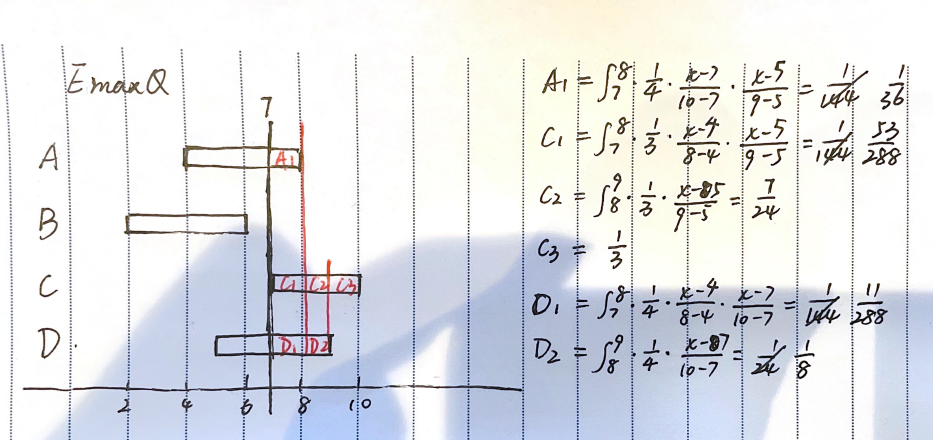 EmaxQ
7
A
A1
B
C
C1 C2 C3
D.
D1 D2
2 4 6 8 10
A1 = ∫₇⁸ · 1/4 · (x-7)/(10-7) · (x-5)/(9-5) = 1/144 1/36
C1 = ∫₇⁸ · 1/3 · (x-4)/(8-4) · (x-5)/(9-5) = 1/144 53/288
C2 = ∫₈⁹ · 1/3 · (x-5)/(9-5) = 7/24
C3 = 1/3
D1 = ∫₇⁸ · 1/4 · (x-4)/(8-4) · (x-7)/(10-7) = 1/144 11/288
D2 = ∫₈⁹ · 1/4 · (x-7)/(10-7) = 1/24 1/8